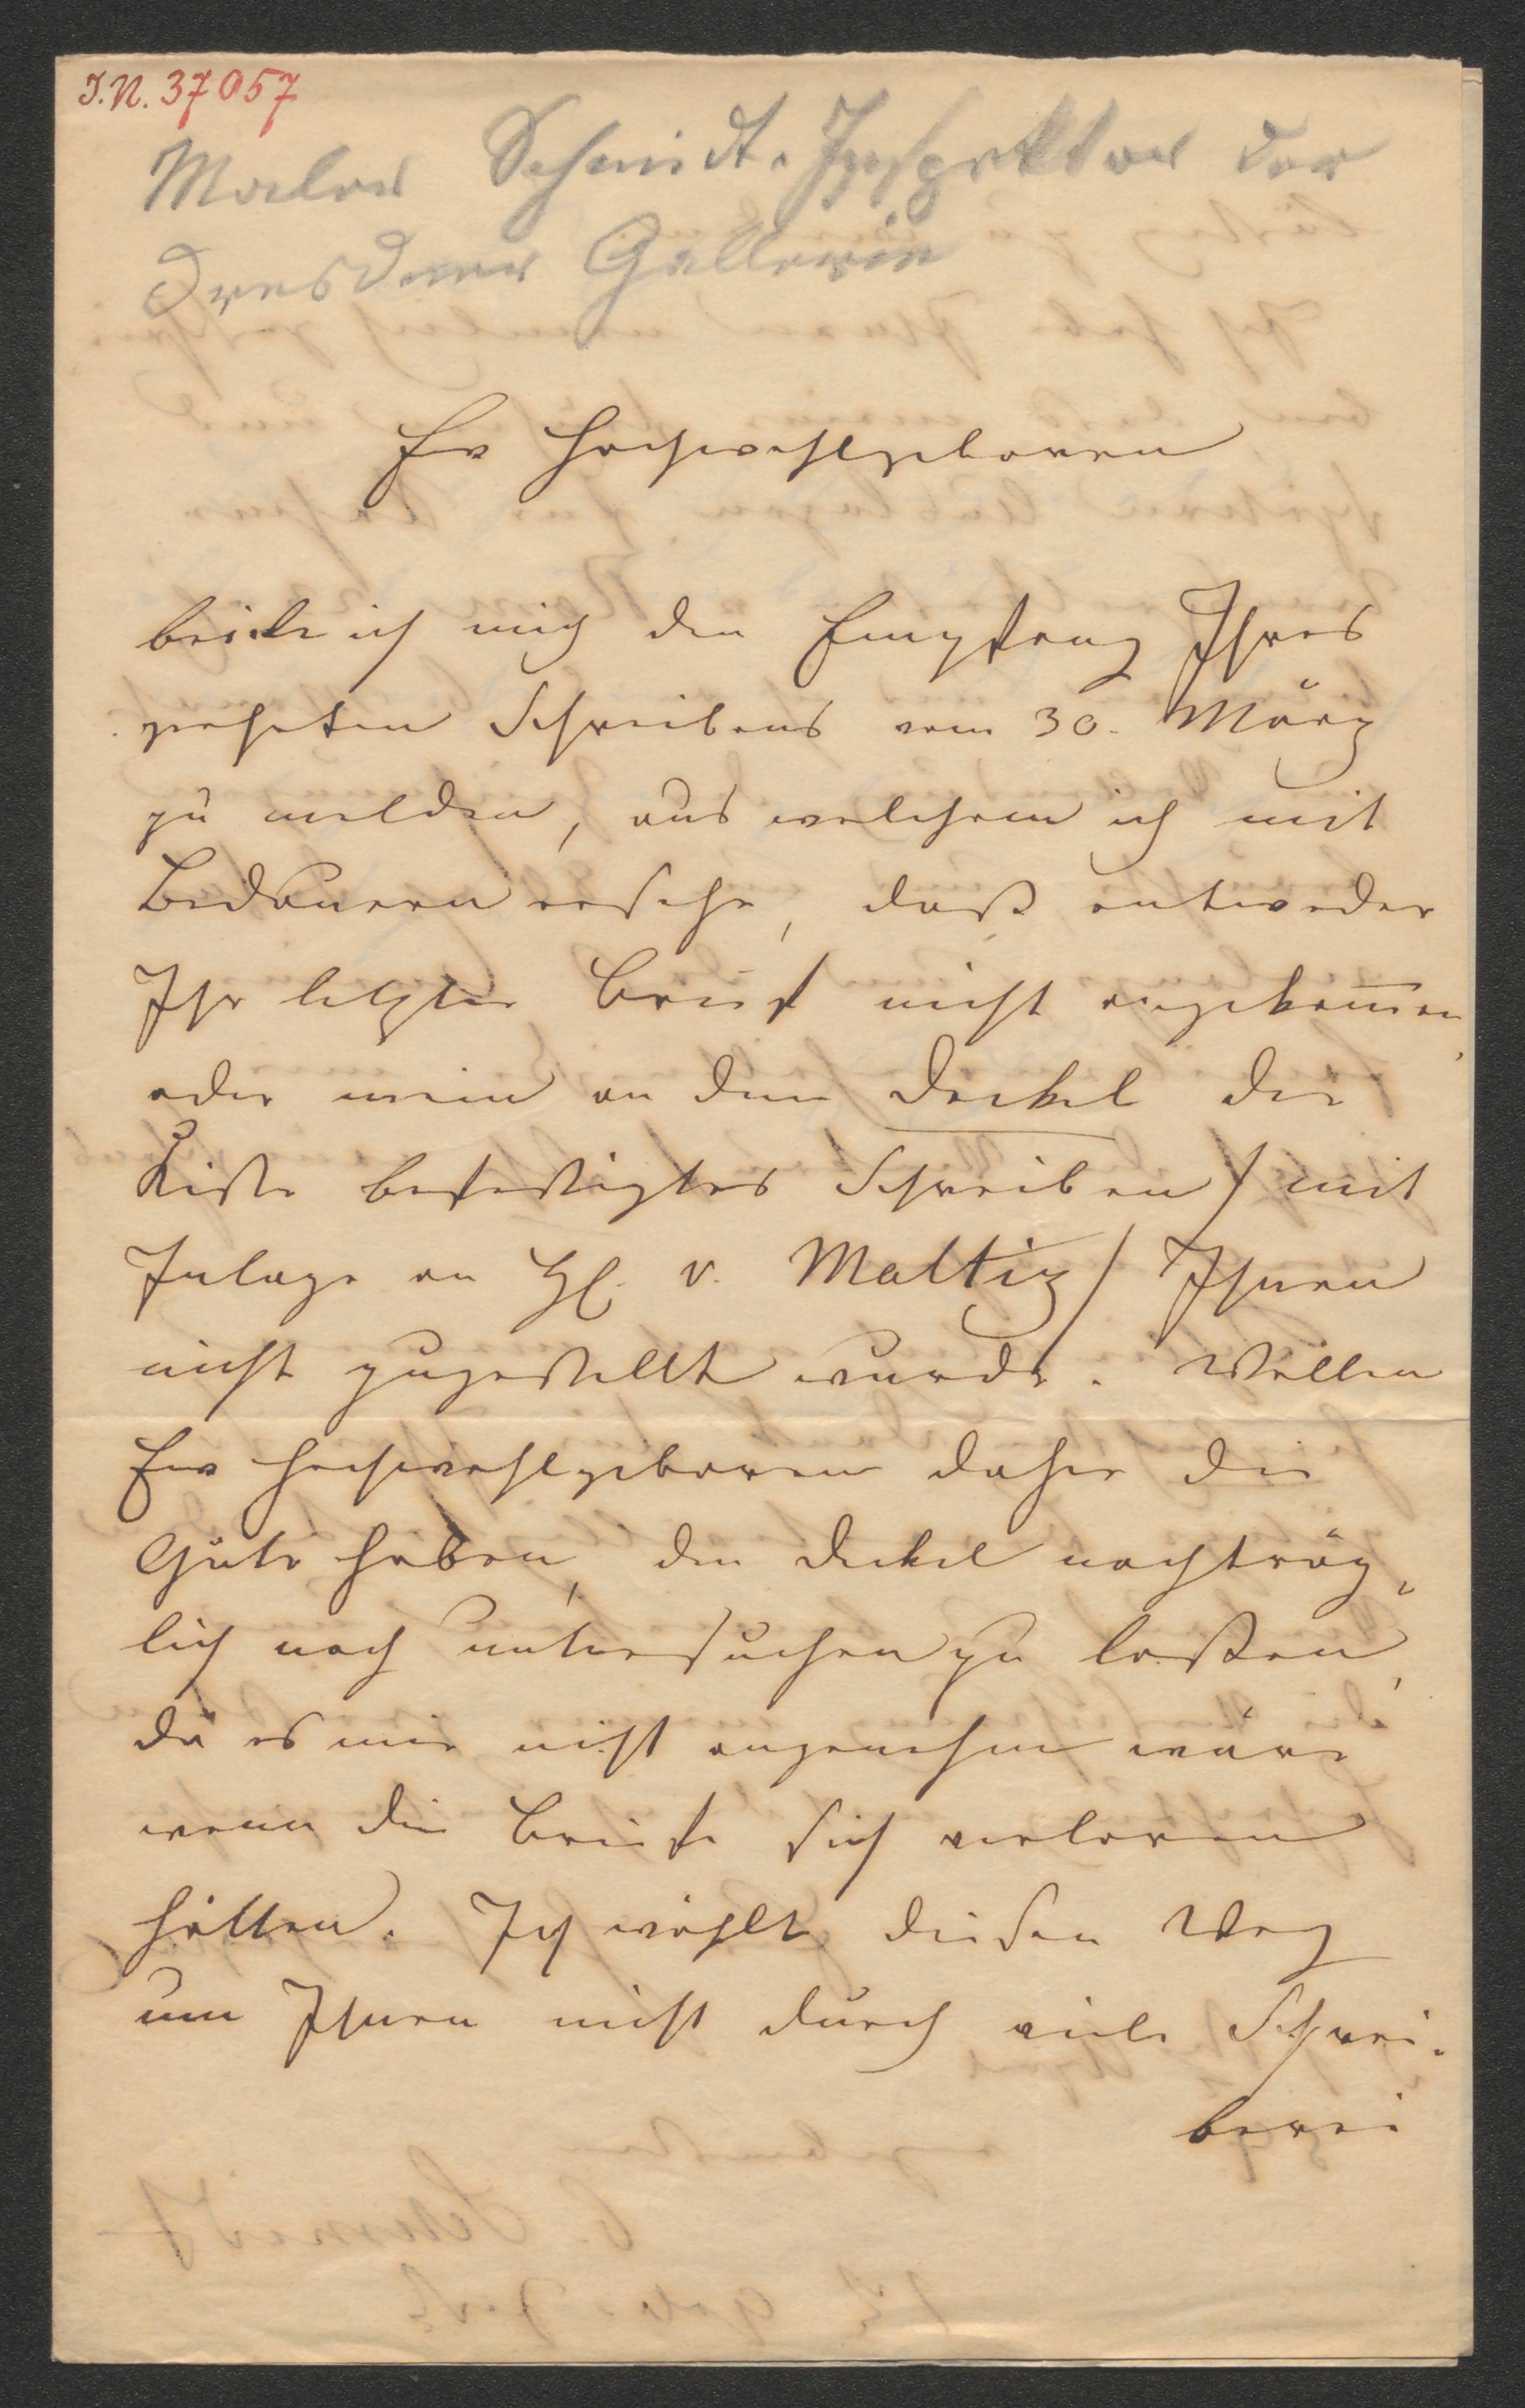 I.N. 37057
Maler Schmidt. Inspektor der
Dresdner Gallerie
Ew Hochwohlgeboren
beeile ich mich den Empfang Ihres
geehrten Schreibens vom 30. März
zu melden, aus welchem ich mit
Bedauern ersehe, daß entweder
Ihr letzter Brief nicht angekom̅en,
oder mein an dem Deckel der
Kiste befestigtes Schreiben / mit
Inlage an H. v. Maltiz / Ihnen
nicht zugestellt wurde. Wollen
Ew Hochwohlgeboren daher die
Güte haben, den Deckel nachträg-
lich noch untersuchen zu laßen,
da es mir nicht angenehm wäre
wenn die Briefe sich verloren
hätten. Ich wählte diesen Weg
um Ihnen nicht durch viele Schrei-
berei